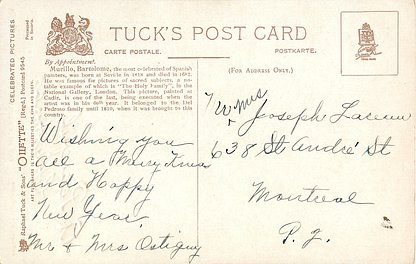 TUCK'S POST CARD
CARTE POSTALE.
POSTKARTE.
CELEBRATED PICTURES
Processed in Bavaria.
By Appointment.
Murillo, Bartolome, the most celebrated of Spanish
painters, was born at Seville in 1618 and died in 1682.
He was famous for pictures of sacred subjects, a no-
table example of which is "The Holy Family", in the
National Gallery, London. This picture, painted at
Cadiz, is one of the last, being executed when the
artist was in his 60th year. It belonged to the Del
Pedroso family until 1810, when it was brought to this
country.
(FOR ADDRESS ONLY.)
Raphael Tuck & Sons' "OILETTE" [Regd.] Postcard 9545
ART PUBLISHERS TO THEIR MAJESTIES THE KING AND QUEEN
Wishing you
all a Merry Xmas
and Happy
New Year.
Mr & Mrs Ostiguy
Mrs
Joseph
638 St André St
Montreal
P. Q.